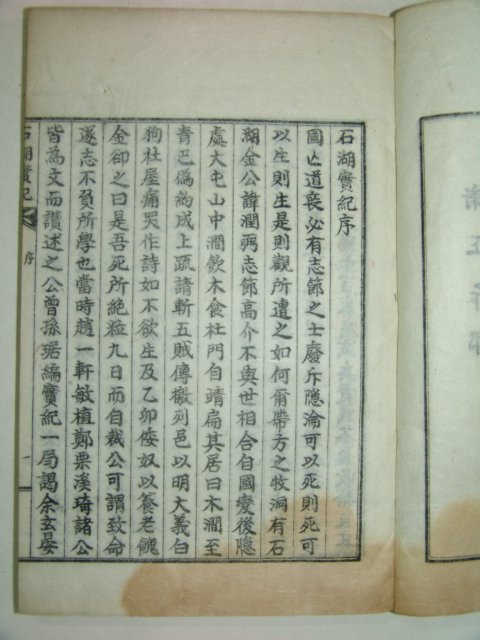 石湖實紀序
國亾道喪必有志節之士廢斥隱淪可以死則死可
以生則生是則觀所遭之如何爾帶方之牧洞有石
湖金公諱潤弼志節高介不與世相合自國變後隱
處大屯山中澗飮木食杜門自靖扁其居曰木澗至
靑巴僞約成上䟽請斬五賊傳檄列邑以明大義白
狗社屋痛哭作詩如不欲生及乙卯倭奴以養老餽
金卻之曰是吾死所絶粒九日而自裁公可謂致命
遂志不負所學也當時趙一軒敏植鄭栗溪琦諸公
皆爲文而讚述之公曾孫琚編實紀一局謁余玄晏
石湖實紀 序 一